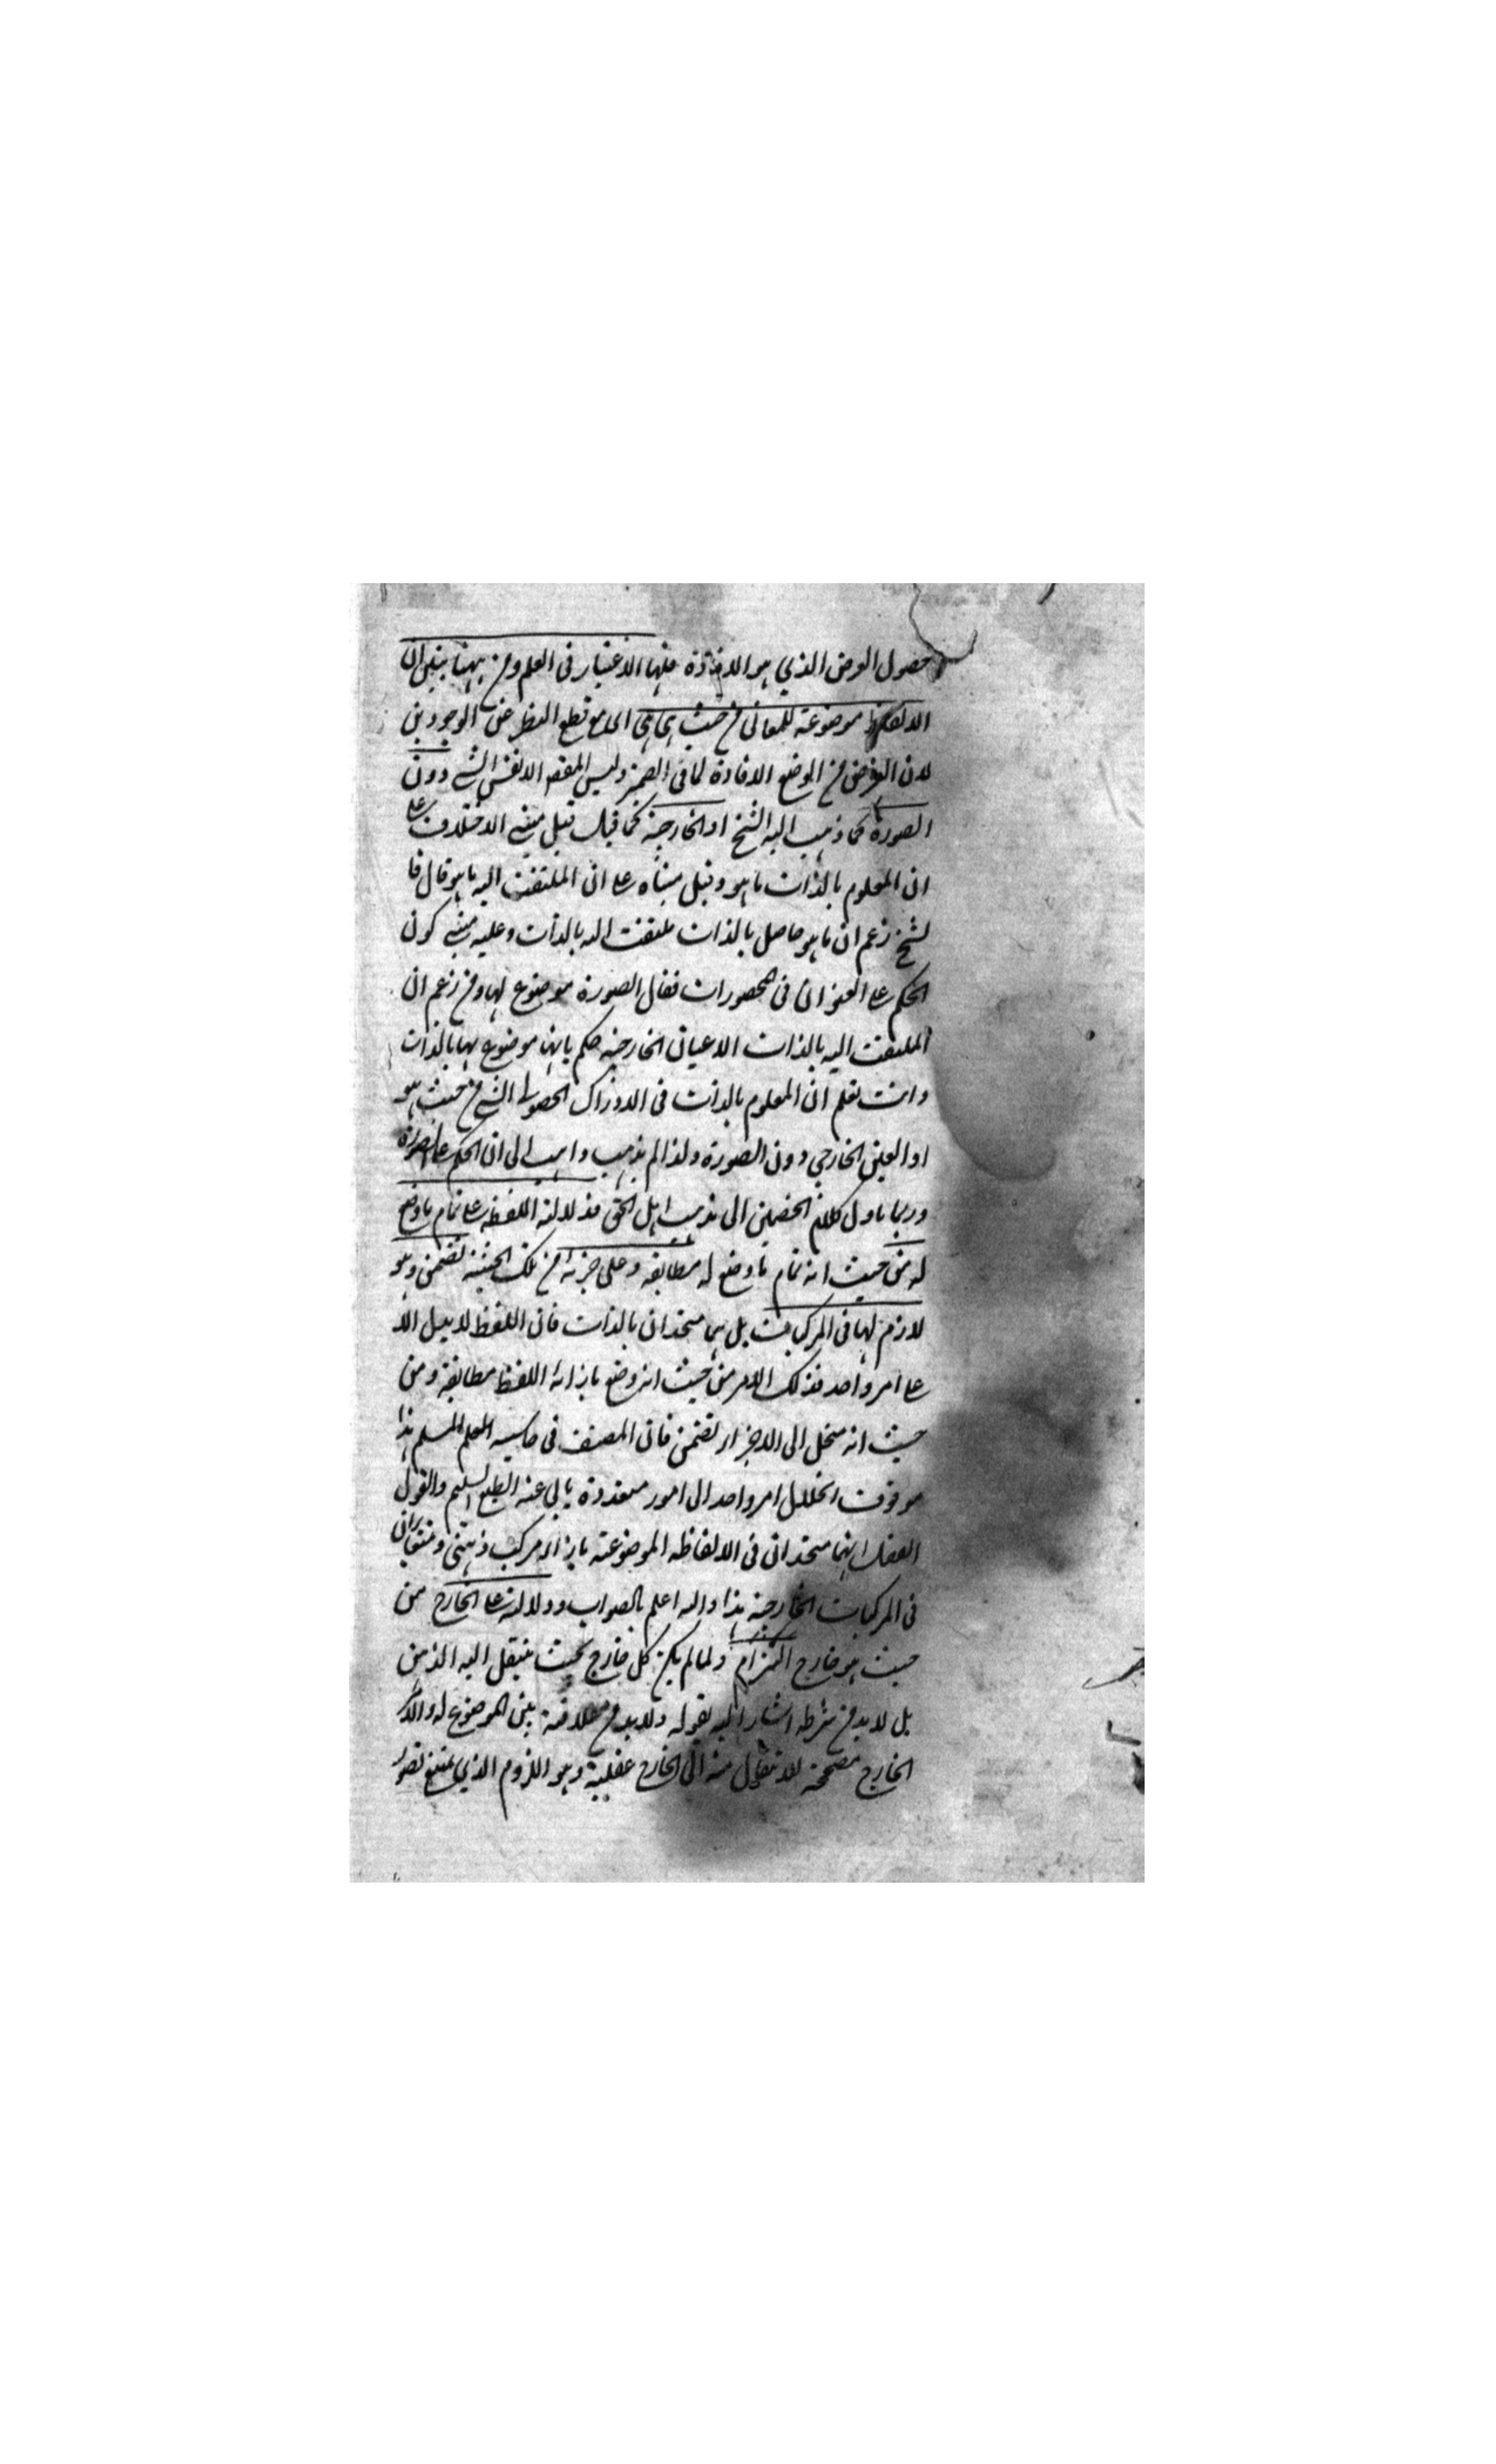 حصول الغرض الذي هو الافادة فلها الاعتبار فى العلم ومن ههنا يتبين ان
الالفاظ موضوعة للمعانى من حيث هي هي اى مع قطع النظر عن الوجودين
لان الغرض من الوضع الافادة لما فى الضمير وليس المقصد الا نفس الشے دون
الصورة كما ذهب اليه الشيخ او الخارجية كما قيل قيل مبنے الاختلاف علے
ان المعلوم بالذات ما هو وقيل مبناه علے ان الملتفت اليه ما هو قال فا
لشيخ زعم ان ما هو حاصل بالذات ملتفت اليه بالذات وعليه مبنے كون
الحكم علے العنوان فى المحصورات فقال الصورة موضوع لها ومن زعم ان
الملتفت اليه بالذات الاعيان الخارجية حكم بانها موضوع لها بالذات
وانت تعلم ان المعلوم بالذات فى الادراك الحصولے الشے من حيث هو
او العين الخارجي دون الصورة ولذا لم يذهب ذاهب الى ان الحكم علے الصورة
وربما ياول كلام الخصمين الى مذهب اهل الحق فدلالة اللفظ علے تمام ما وضع
له من حيث انه تمام ما وضع له مطابقة وعلى جزئه من تلك الحيثية تضمن وهو
لازم لها فى المركبات بل هما متحدان بالذات فان اللفظ لا يدل الا
علے امر واحد فذلك الامر من حيث انه وضع بازائه اللفظ مطابقة ومن
حيث انه منحل الى الاجزاء تضمن قال المصنف فى حاشية السلم المسلم هذا
موقوف انحلال امر واحد الى امور متعددة يابى عنه الطبع السليم والقول
الفصل انهما متحدان فى الالفاظ الموضوعة بازاء مركب ذهنى ومتغايران
فى المركبات الخارجية هذا والله اعلم بالصواب ودلالته علے الخارج من
حيث هو خارج التزام ولما لم يكن كل خارج بحيث ينتقل اليه الذهن
بل لا بد من شرط اشار اليه بقوله ولابد من علاقة بين الموضوع له والامر
الخارج مصححة للانتقال منه الى الخارج عقلية وهو اللزوم الذي يمتنع تصور